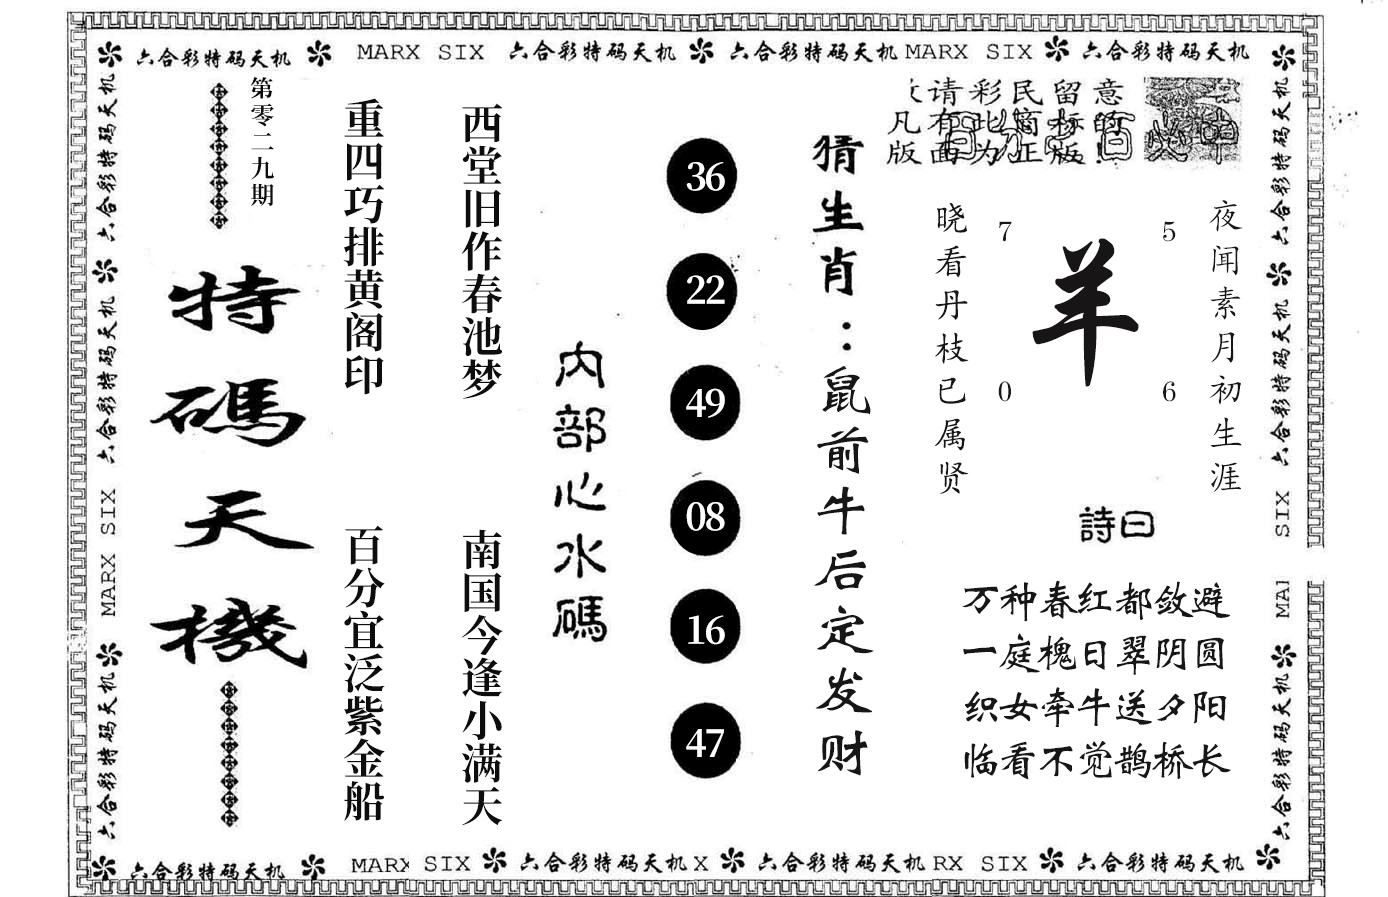 六合彩特码天机 MARX SIX 六合彩特码天机 六合彩特码天机 MARX SIX 六合彩特码天机
六合彩特码天机
六合彩特码天机
MARX SIX
六合彩特码天机
第零二九期
特碼天機
重四巧排黄阁印
百分宜泛紫金船
西堂旧作春池梦
南国今逢小满天
内部心水碼
36
22
49
08
16
47
猜生肖：鼠前牛后定发财
请彩民留意
凡有此窗标的
版面为正版!
夜闻素月初生涯
晓看丹枝已属贤
7 5
羊
0 6
詩曰
万种春红都敛避
一庭槐日翠阴圆
织女牵牛送夕阳
临看不觉鹊桥长
六合彩特码天机
六合彩特码天机
SIX
MAI
六合彩特码天机
六合彩特码天机 MARX SIX 六合彩特码天机 X 六合彩特码天机 RX SIX 六合彩特码天机